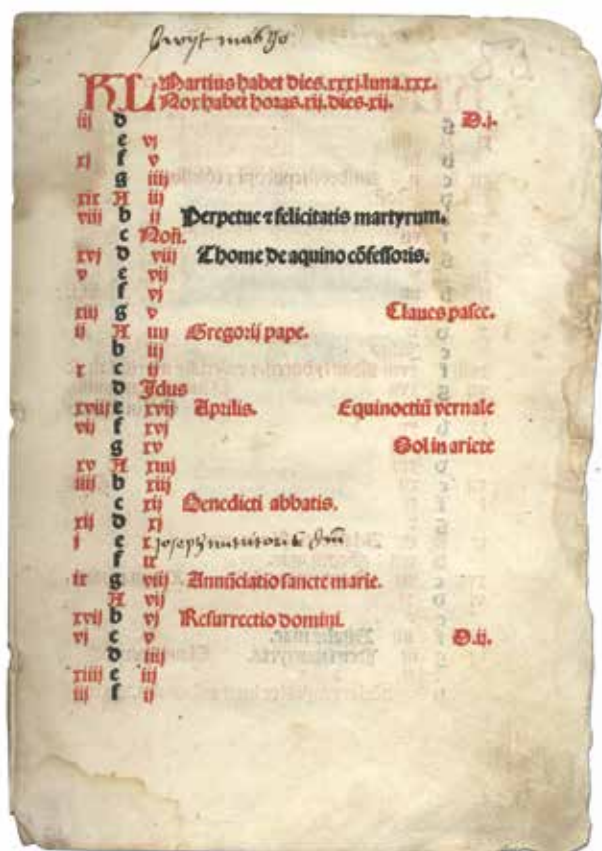 KL Martius habet dies.xxxj.luna.xxx.
Nox habet horas.xij.dies.xij.
iij d D.j.
e vj
xj f v
g iiij
xix A iij
viij b ij Perpetue ⁊ felicitatis martyrum.
c Noñ.
xvj d viij Thome de aquino cõfessoris.
v e vij
f vj
xiij g v Claues pasce.
ij A iiij Gregorij pape.
b iij
x c ij
d Jdus
xviij e xvij Aprilis. Equinoctiũ vernale
vij f xvj
g xv Sol in ariete
xv A xiiij
iiij b xiij
c xij Benedicti abbatis.
xij d xj
j e x
f ix
ix g viij Annũciatio sancte marie.
A vij
xvij b vj Resurrectio domini.
vj c v D.ij.
d iiij
xiiij e iij
iij f ij